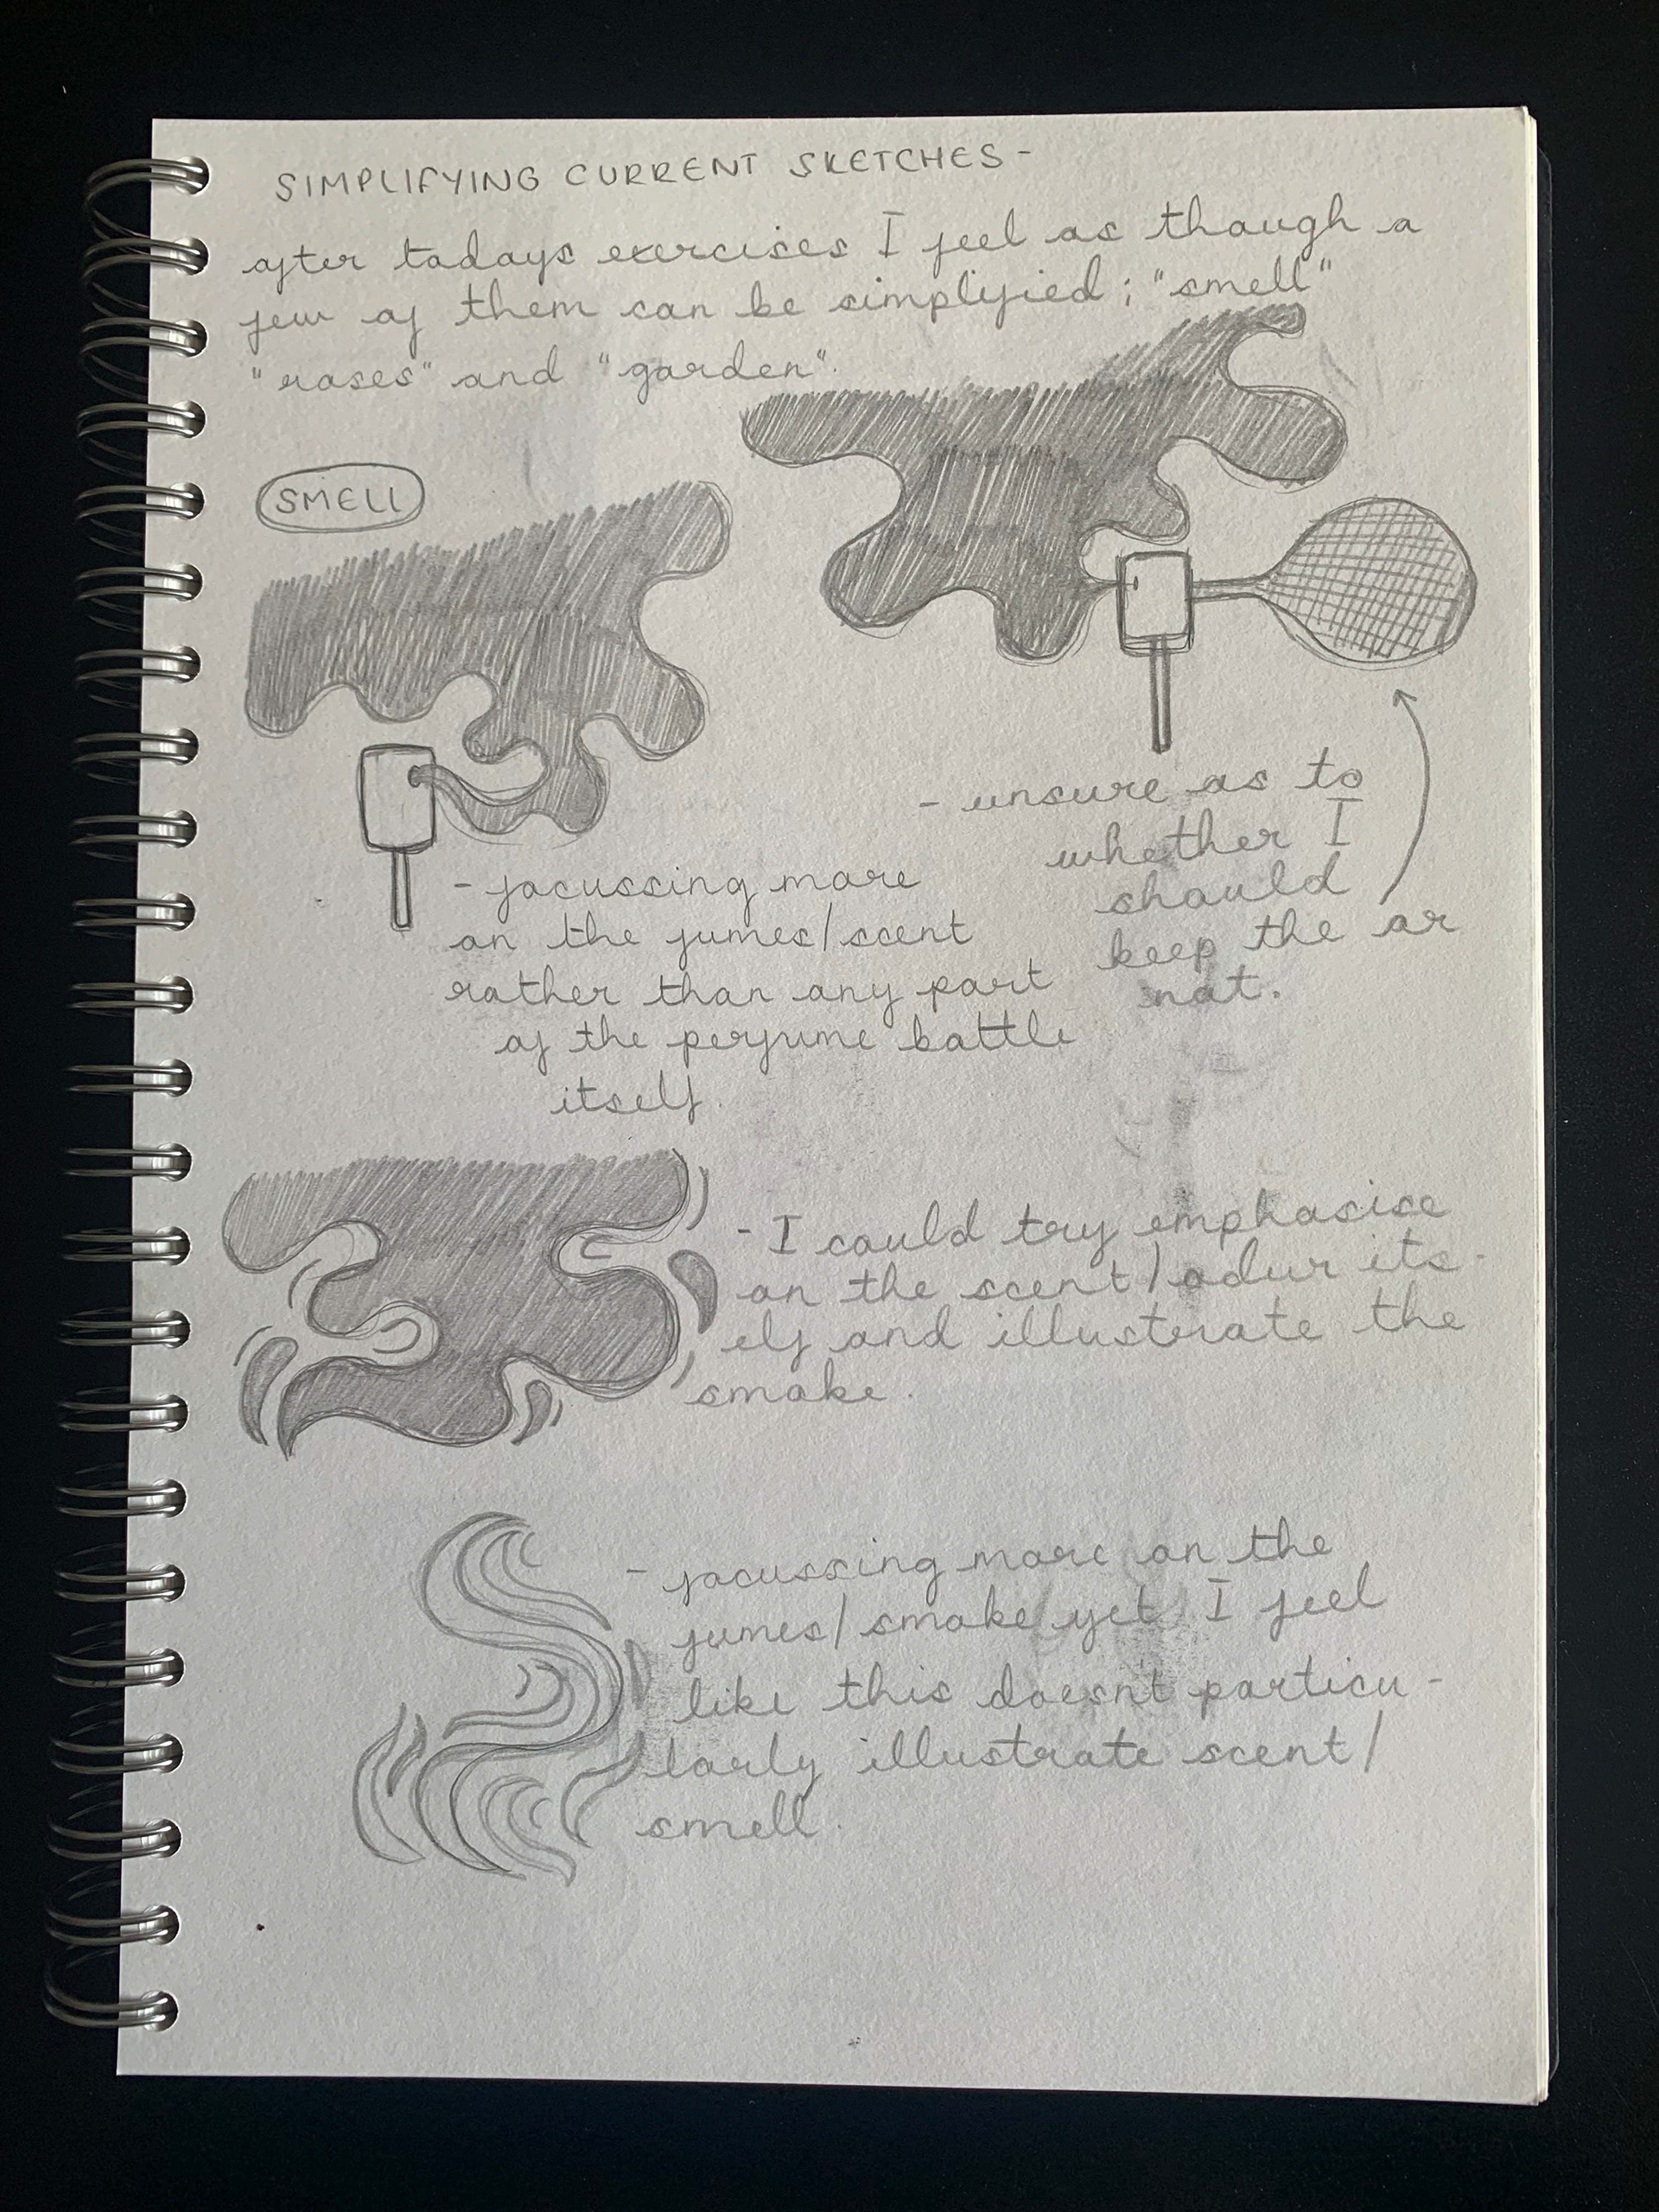 SIMPLIFYING CURRENT SKETCHES -
after todays exercises I feel as though a
few of them can be simplified; "smell"
"roses" and "garden".
SMELL
- focussing more
on the fumes/scent
rather than any part
of the perfume bottle
itself.
- unsure as to
whether I
should
keep the or
not.
- I could try emphasise
on the scent/odur its-
elf and illustrate the
smoke.
- focussing more on the
fumes/smoke yet I feel
like this doesn't particu-
larly illustrate scent/
smell.